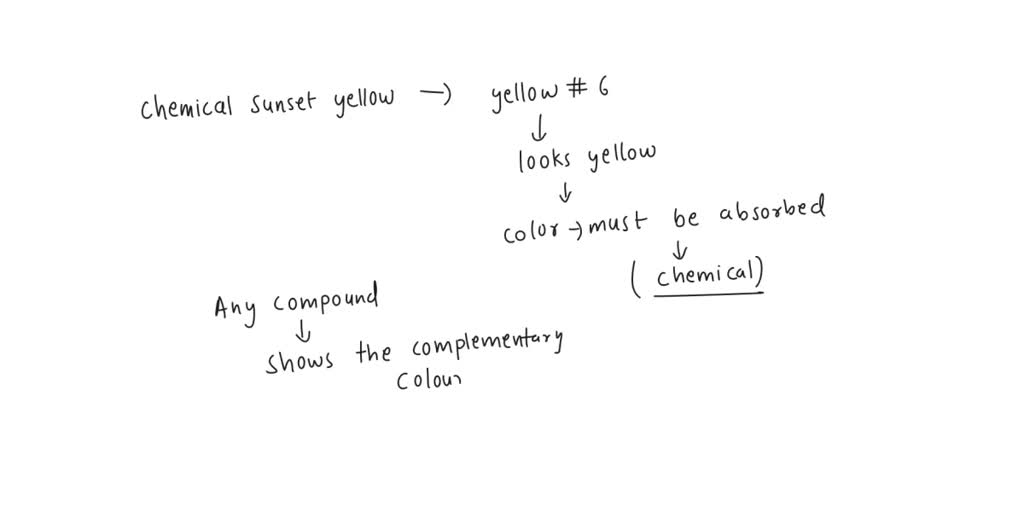 Chemical Sunset yellow → yellow # 6
↓
looks yellow
↓
color → must be absorbed
↓
(chemical)
Any compound
↓
shows the complementary
colour